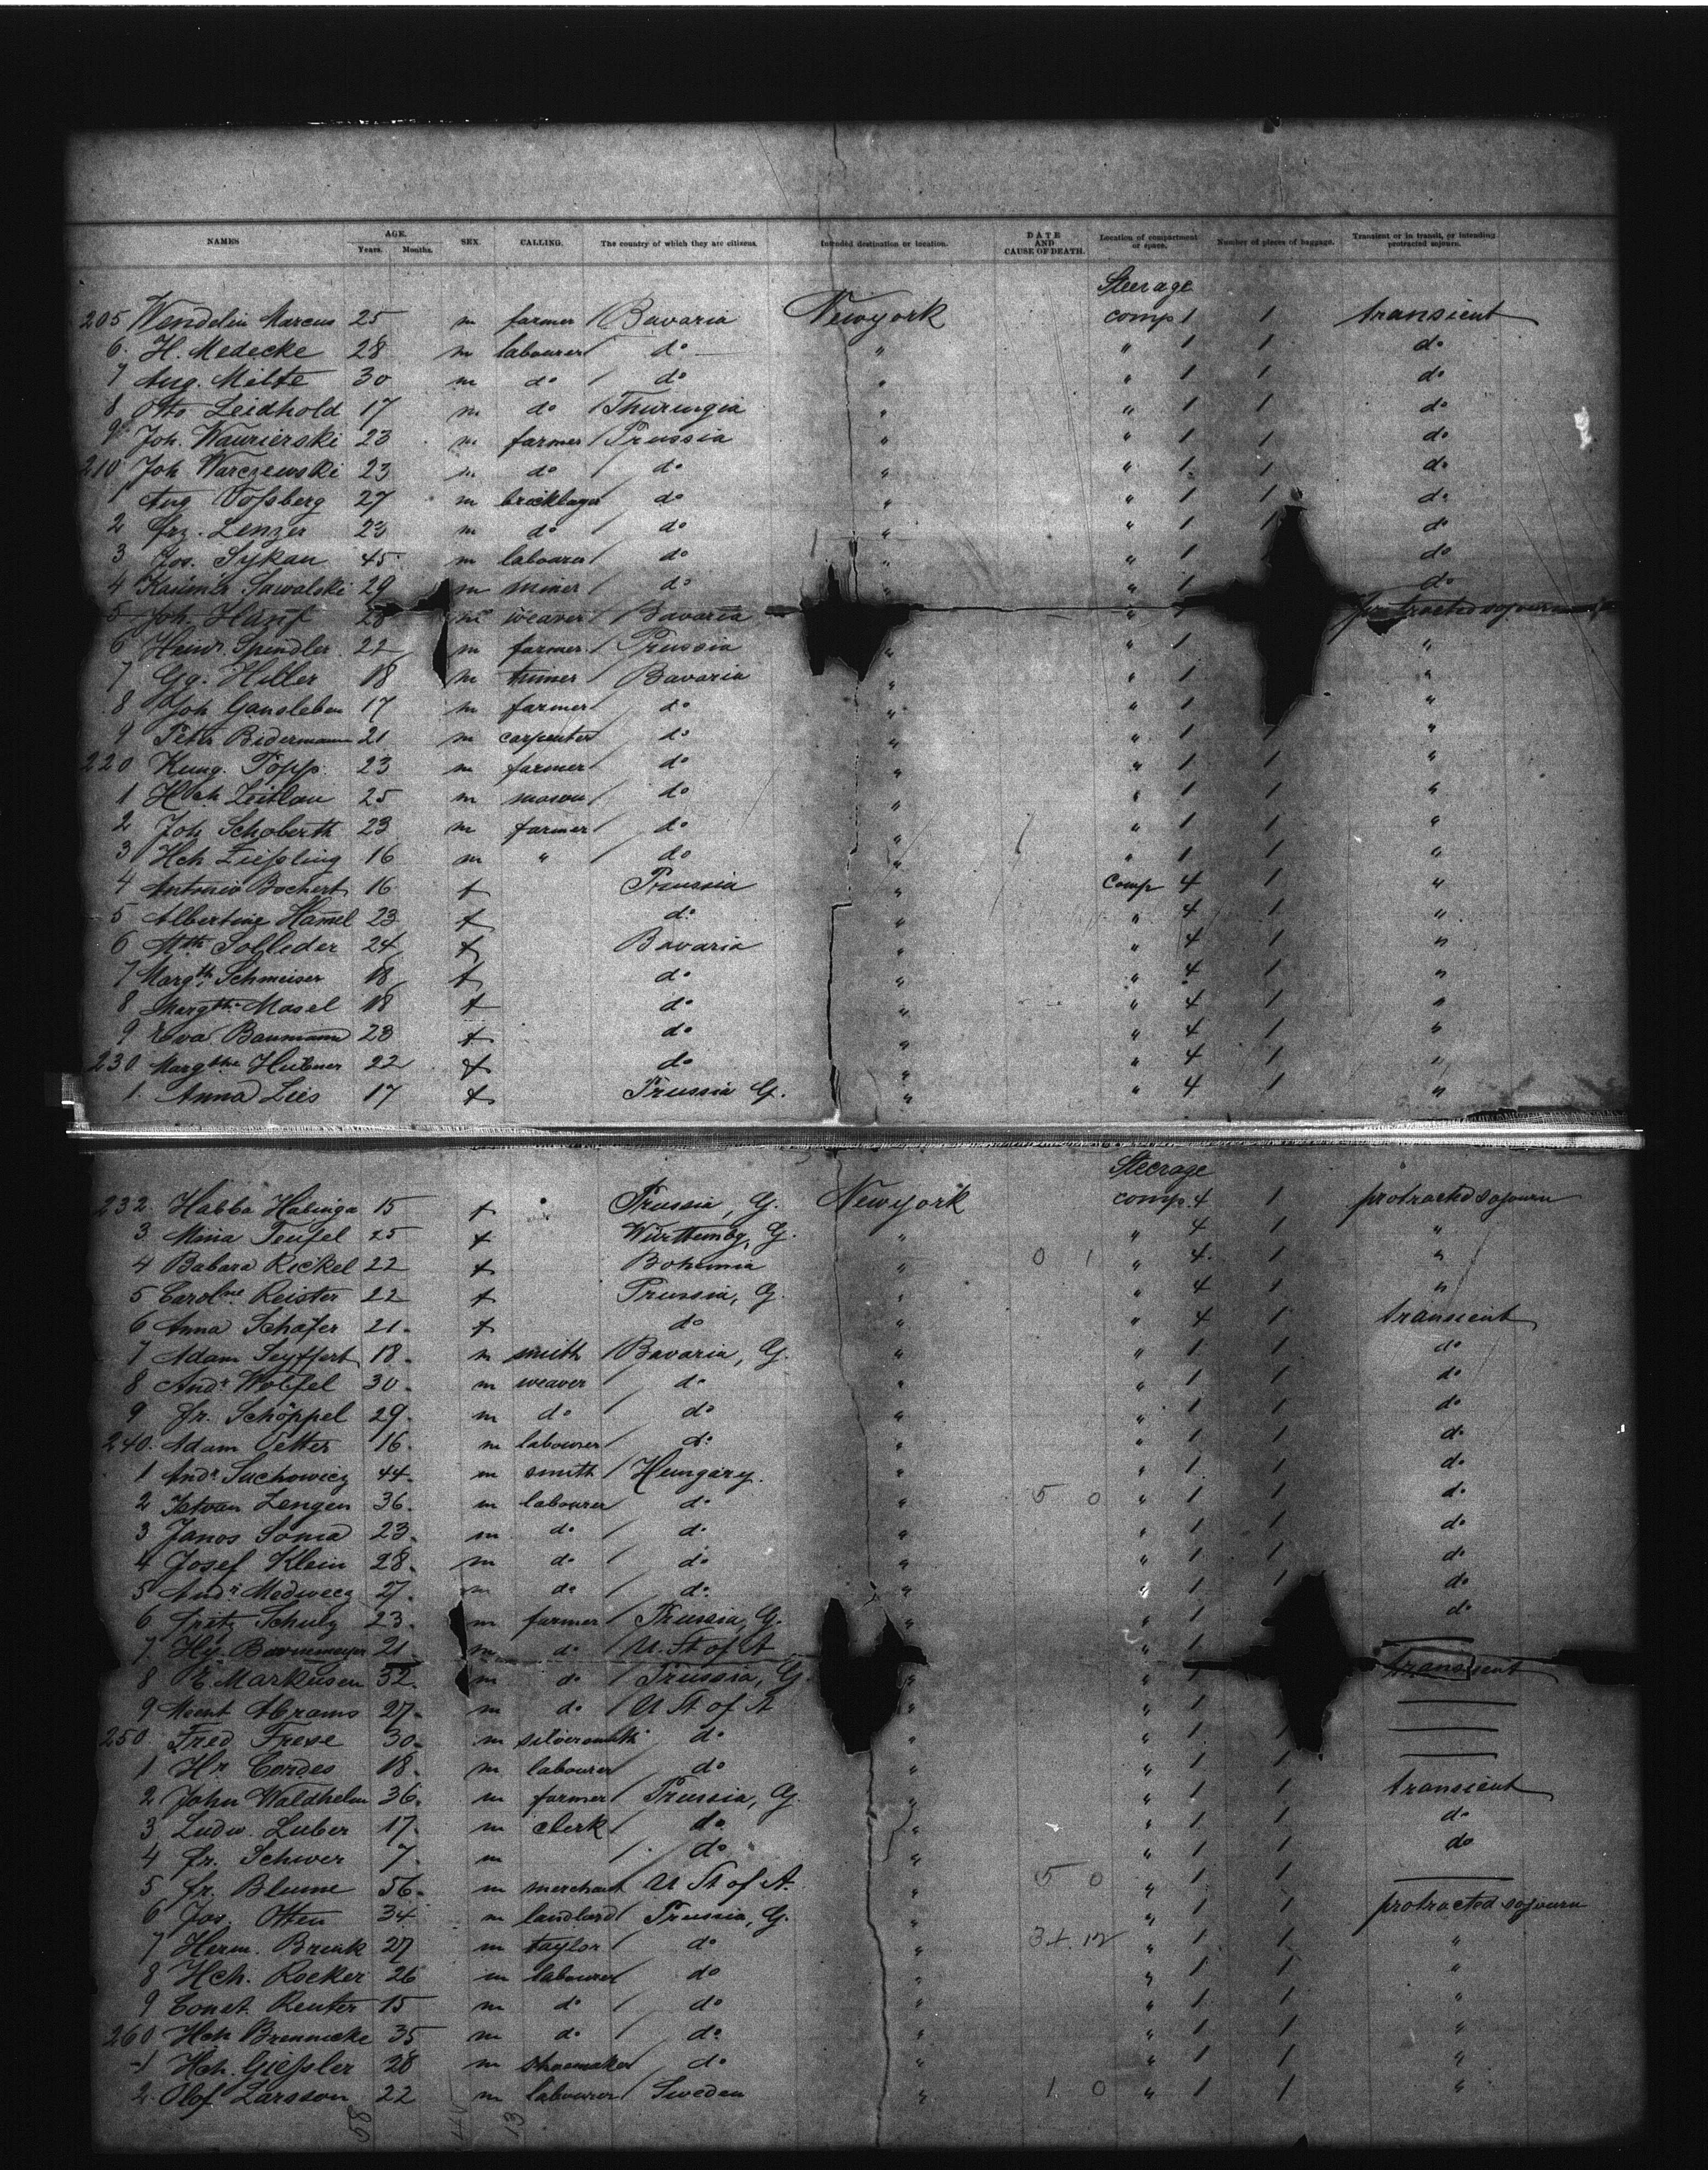 NAMES AGE. Years. Months. SEX. CALLING. The country of which they are citizens. Intended destination or location. DATE AND CAUSE OF DEATH. Location of compartment or space. Number of pieces of baggage. Transient or in transit, or intending protracted sojourn.
Steerage
205 Wendelin Marcus 25 m farmer / Bavaria Newyork comp 1 1 transient
6. H. Medecke 28 m labourer / do " " 1 1 do
7 Aug. Milte 30 m do / do " " 1 1 do
8 Otto Leidhold 17 m do / Thuringia " " 1 1 do
9 Joh. Waurierski 23 m farmer / Prussia " " 1 1 do
210 Joh Warczewski 23 m do / do " " 1 1 do
1 Aug Voßberg 27 m bricklayer do " " 1 1 do
2 Frz. Lenzer 23 m do / do " " 1 1 do
3 Jos. Sykan 45 m labourer / do " " 1 do
4 Kasimir Sawalski 29 m miner / do " " 1 do
5 Joh. Hanf 28 m weaver / Bavaria " 1 protracted sojourn
6 Heinr. Spindler 22 m farmer / Prussia " " 1 "
7 Gg. Hiller 18 m turner / Bavaria " " 1 "
8 Joh Gansleben 17 m farmer / do " " 1 "
9 Peter Bidermann 21 m carpenter do " " 1 1 "
220 Kung. Popp 23 m farmer / do " " 1 1 "
1 Hch Zeitlau 25 m mason / do " " 1 1 "
2 Joh Schoberth 23 m farmer / do " " 1 1 "
3 Hch Zießling 16 m " / do " " 1 1 "
4 Antonio Bochert 16 f Prussia " Comp 4 1 "
5 Albertine Hamel 23 f do " " 4 1 "
6 Mth Solleder 24 f Bavaria " " 4 1 "
7 Margth. Schmeiser 18 f do " " 4 1 "
8 Margthe Masel 18 f do " " 4 1 "
9 Eva Baumann 28 f do " " 4 1 "
230 Margthe Hübner 22 f do " " 4 1 "
1. Anna Lies 17 f Prussia G. " " 4 1 "
Steerage
232. Habba Habinga 15 f Prussia, G. Newyork comp. 4 1 protracted sojourn
3. Mina Teufel 25 f Württembg, G. " " 4 1 "
4 Babara Rickel 22 f Bohemia " 0 1 " 4 1 "
5 Carolne. Reister 22 f Prussia, G. " " 4 1 "
6 Anna Schäfer 21. f do " " 4 1 transient
7 Adam Seyffert 18. m smith / Bavaria, G. " " 1 1 do
8 Andr Wölfel 30. m weaver / do " " 1 1 do
9 Fr. Schöppel 29. m do / do " " 1 1 do
240. Adam Vetter 16. m labourer do " " 1 1 do
1 Andr Suchowicz 44. m smith / Hungary. " " 1 1 do
2 Istvan Lengen 36. m labourer do " 5 0 " 1 1 do
3 Janos Soma 23. m do / do " " 1 1 do
4 Josef Klein 28. m do / do " " 1 1 do
5 Andr Medwecz 27. m do / do " " 1 do
6 Fritz Schulz 23. m farmer / Prussia, G. " " 1 do
7. Hy. Bornemeyer 21. m do / U. St of A " 1
8 E. Markusen 32. m do / Prussia, G. " " 1 transient
9 Meent Abrams 27. m do / U St of A " 1
250. Fred Frese 30. m silversmith do " " 1 1
1 Hr Cordes 18. m labourer do " " 1 1
2 John Waldhelm 36. m farmer / Prussia, G. " " 1 1 transient
3 Ludw. Luber 17. m clerk / do " " 1 1 do
4 Fr. Schwer 7. m / do " " 1 1 do
5 Fr. Blume 56. m merchant U St of A. " 5 0 " 1 1
6 Jos. Otten 34 m landlord / Prussia, G. " " 1 1 protracted sojourn
7 Herm. Brink 27 m taylor / do " " 1 1 "
8 Hch. Rocker 26 m labourer / do " " 1 1 "
9 Const. Reuter 15 m do / do " " 1 1 "
260 Hch Brennicke 35 m do / do " " 1 1 "
1 Hch. Gießler 28 m shoemaker do " " 1 1 "
2. Olof Larsson 22 m labourer / Sweden " 1 0 " 1 1 "
58 13